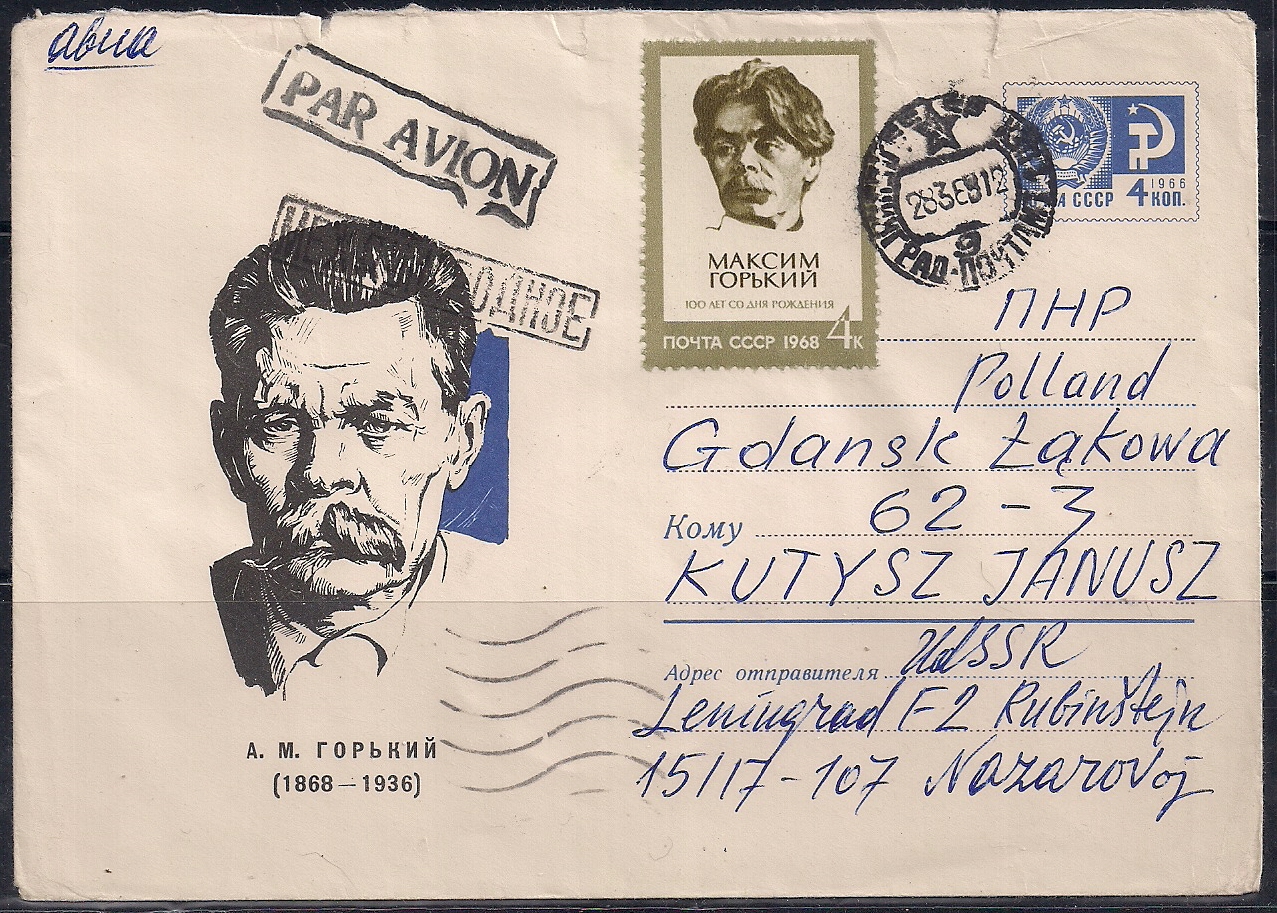 авиа
PAR AVION
МАКСИМ
ГОРЬКИЙ
100 ЛЕТ СО ДНЯ РОЖДЕНИЯ
ПОЧТА СССР 1968 4К
СССР
1966
4 КОП.
ПОЧТАМТ
9
ПНР
Polland
Gdansk Łąkowa
62-3
Кому
KUTYSZ JANUSZ
Адрес отправителя
UdSSR
Leningrad F-2 Rubinštejn
15/17-107 Nazarovoj
А. М. ГОРЬКИЙ
(1868 – 1936)